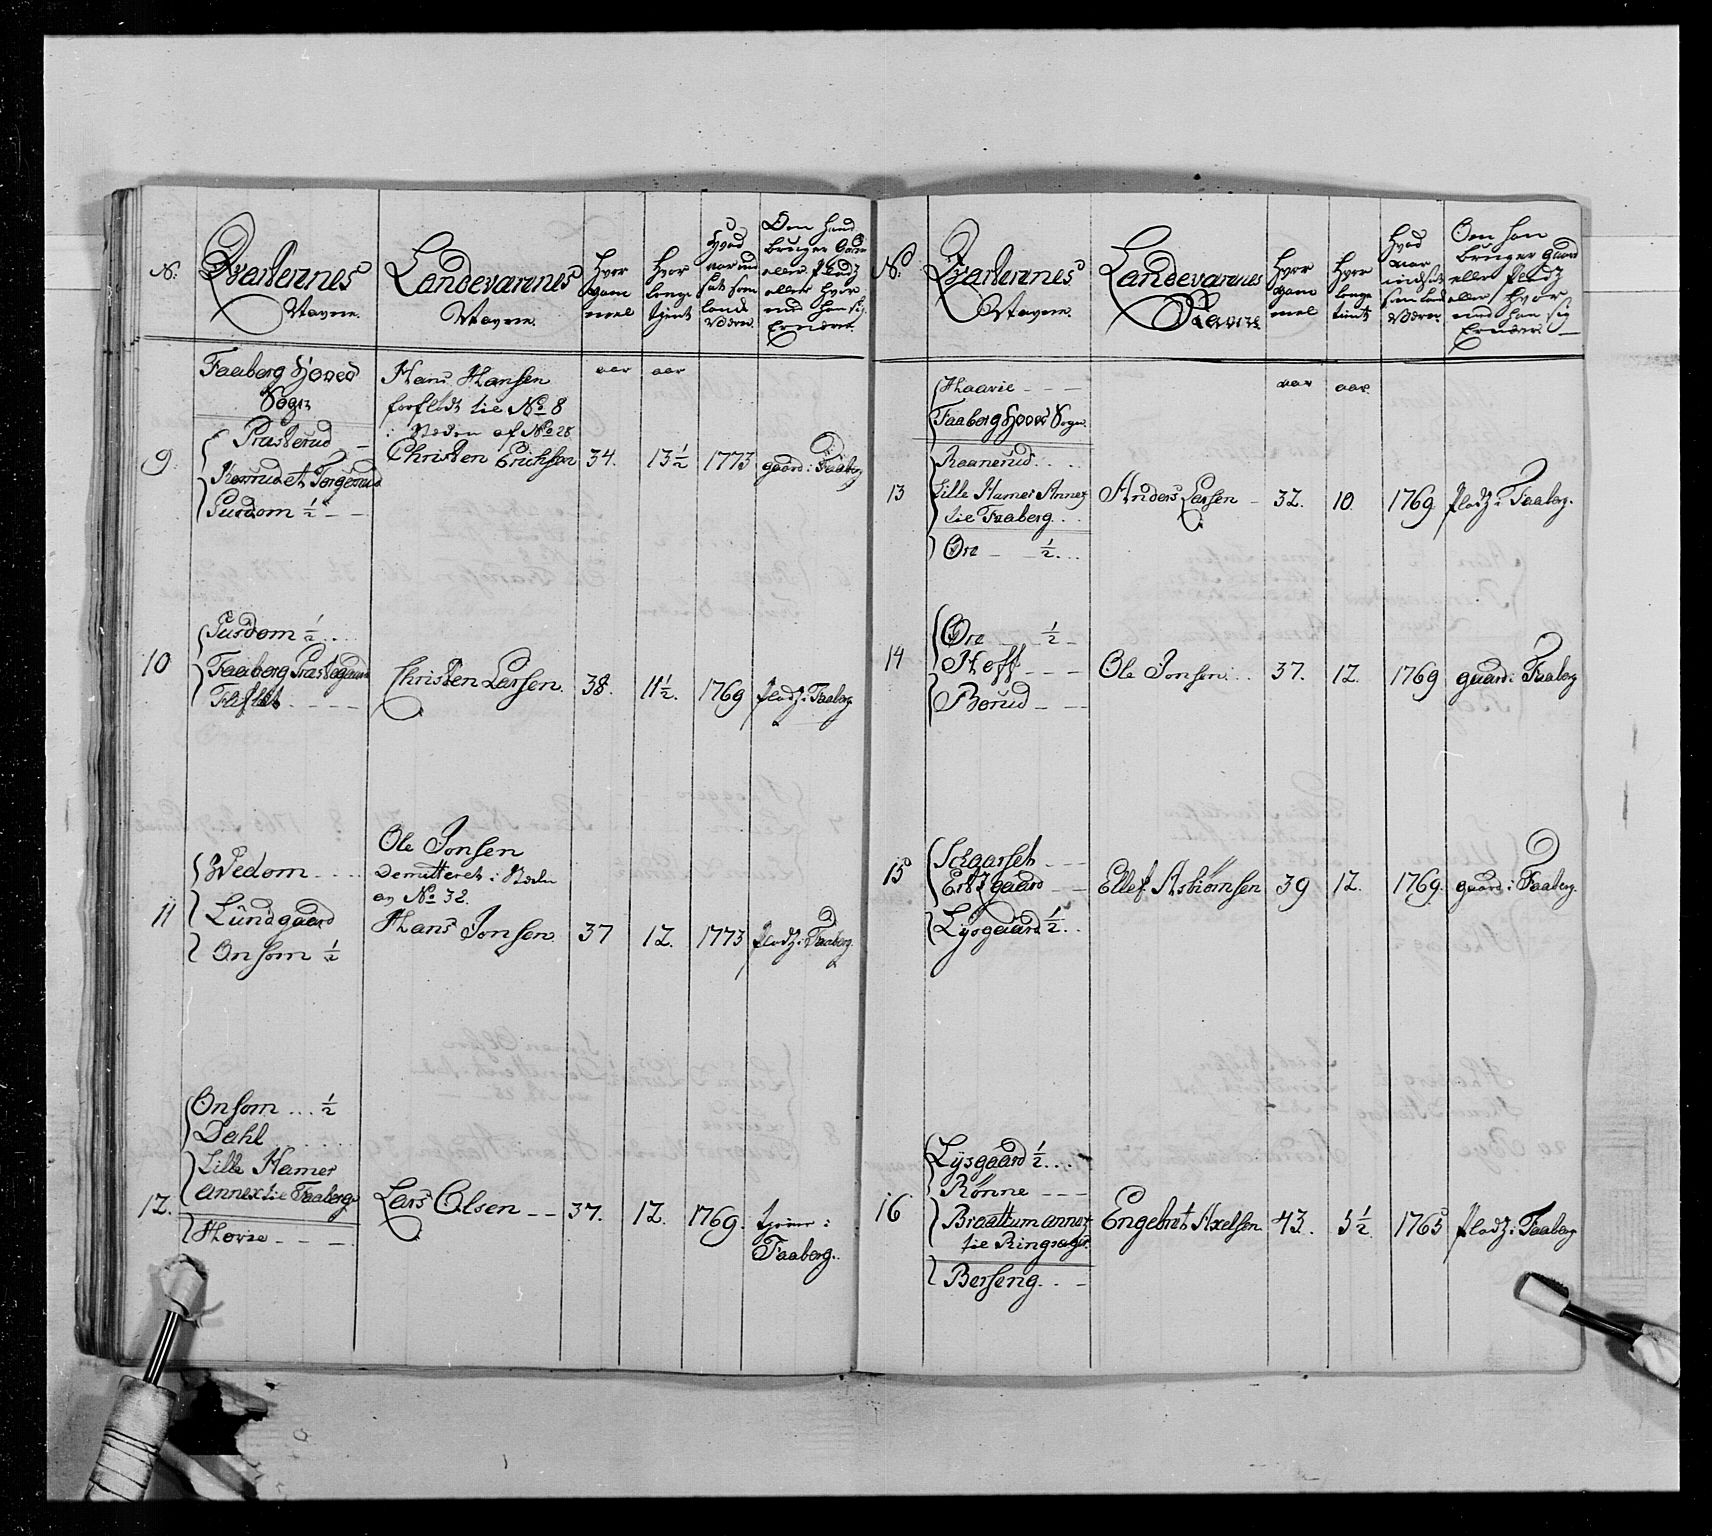 No
Qvarterenes
Navne.
Landeværenes
Navne.
Hvor
gam
mel
Hvor
lenge
tient
Hvad
aar ind
sat som
land
Værer.
Om hand
bruger Gaard
eller Pladz
eller hvor
med han sig
Ernærer.
Faaberg Hoved
Sogn
Hans Hansen
forflødt til No 8
i Steden af No 28
aar aar
9. Præsterud
Korrud et Torgerud
Surdom ½
Christen Erichsen 34. 13½ 1773 gaard i Faaberg
10 Surdom ½
Faaberg Præstegaard
Flaflet
Christen Larsen. 38. 11½. 1769 Pladz i Faaberg.
Ole Jonsen
Demitteret i Steden
av No 32.
11 Vedom
Lundgaard
Onsom ½
Hans Jonsen 37 12. 1773 pladz i Faaberg.
12. Onsom ... ½
Dahl
Lille Hamer
annex til Faaberg
Hovie
Lars Olsen 37. 12. 1769. tjener i
Faaberg.
No
Qvarterenes
Navne.
Landevarenes
Navne
Hvor
gam
mel
Hvor
lenge
tient
Hvad
aar
indsat
som land
Værer
Om han
bruger Gaard
eller Pladz
eller hvor
med han sig
Ernærer.
aar aar
Haavie
Faaberg Hoved Sogn
13 Raanerud
Lille Hamer Annex
til Faaberg
Ore ½
Anders Larsen 32. 10. 1769 pladz i Faaberg.
14 Ore ½
Hoff
Borud
Ole Jonsen 37. 12. 1769 gaard i Faaberg
15 Schaarset
Ertzgaard
Lysgaard ½
Ellef Asbiørnsen 39 12. 1769. gaard i Faaberg.
16 Lysgaard ½
Rønne
Braattum annex
til Ringsager
Berseng
Engebret Axelsen 43. 5½. 1765 pladz i Faaberg